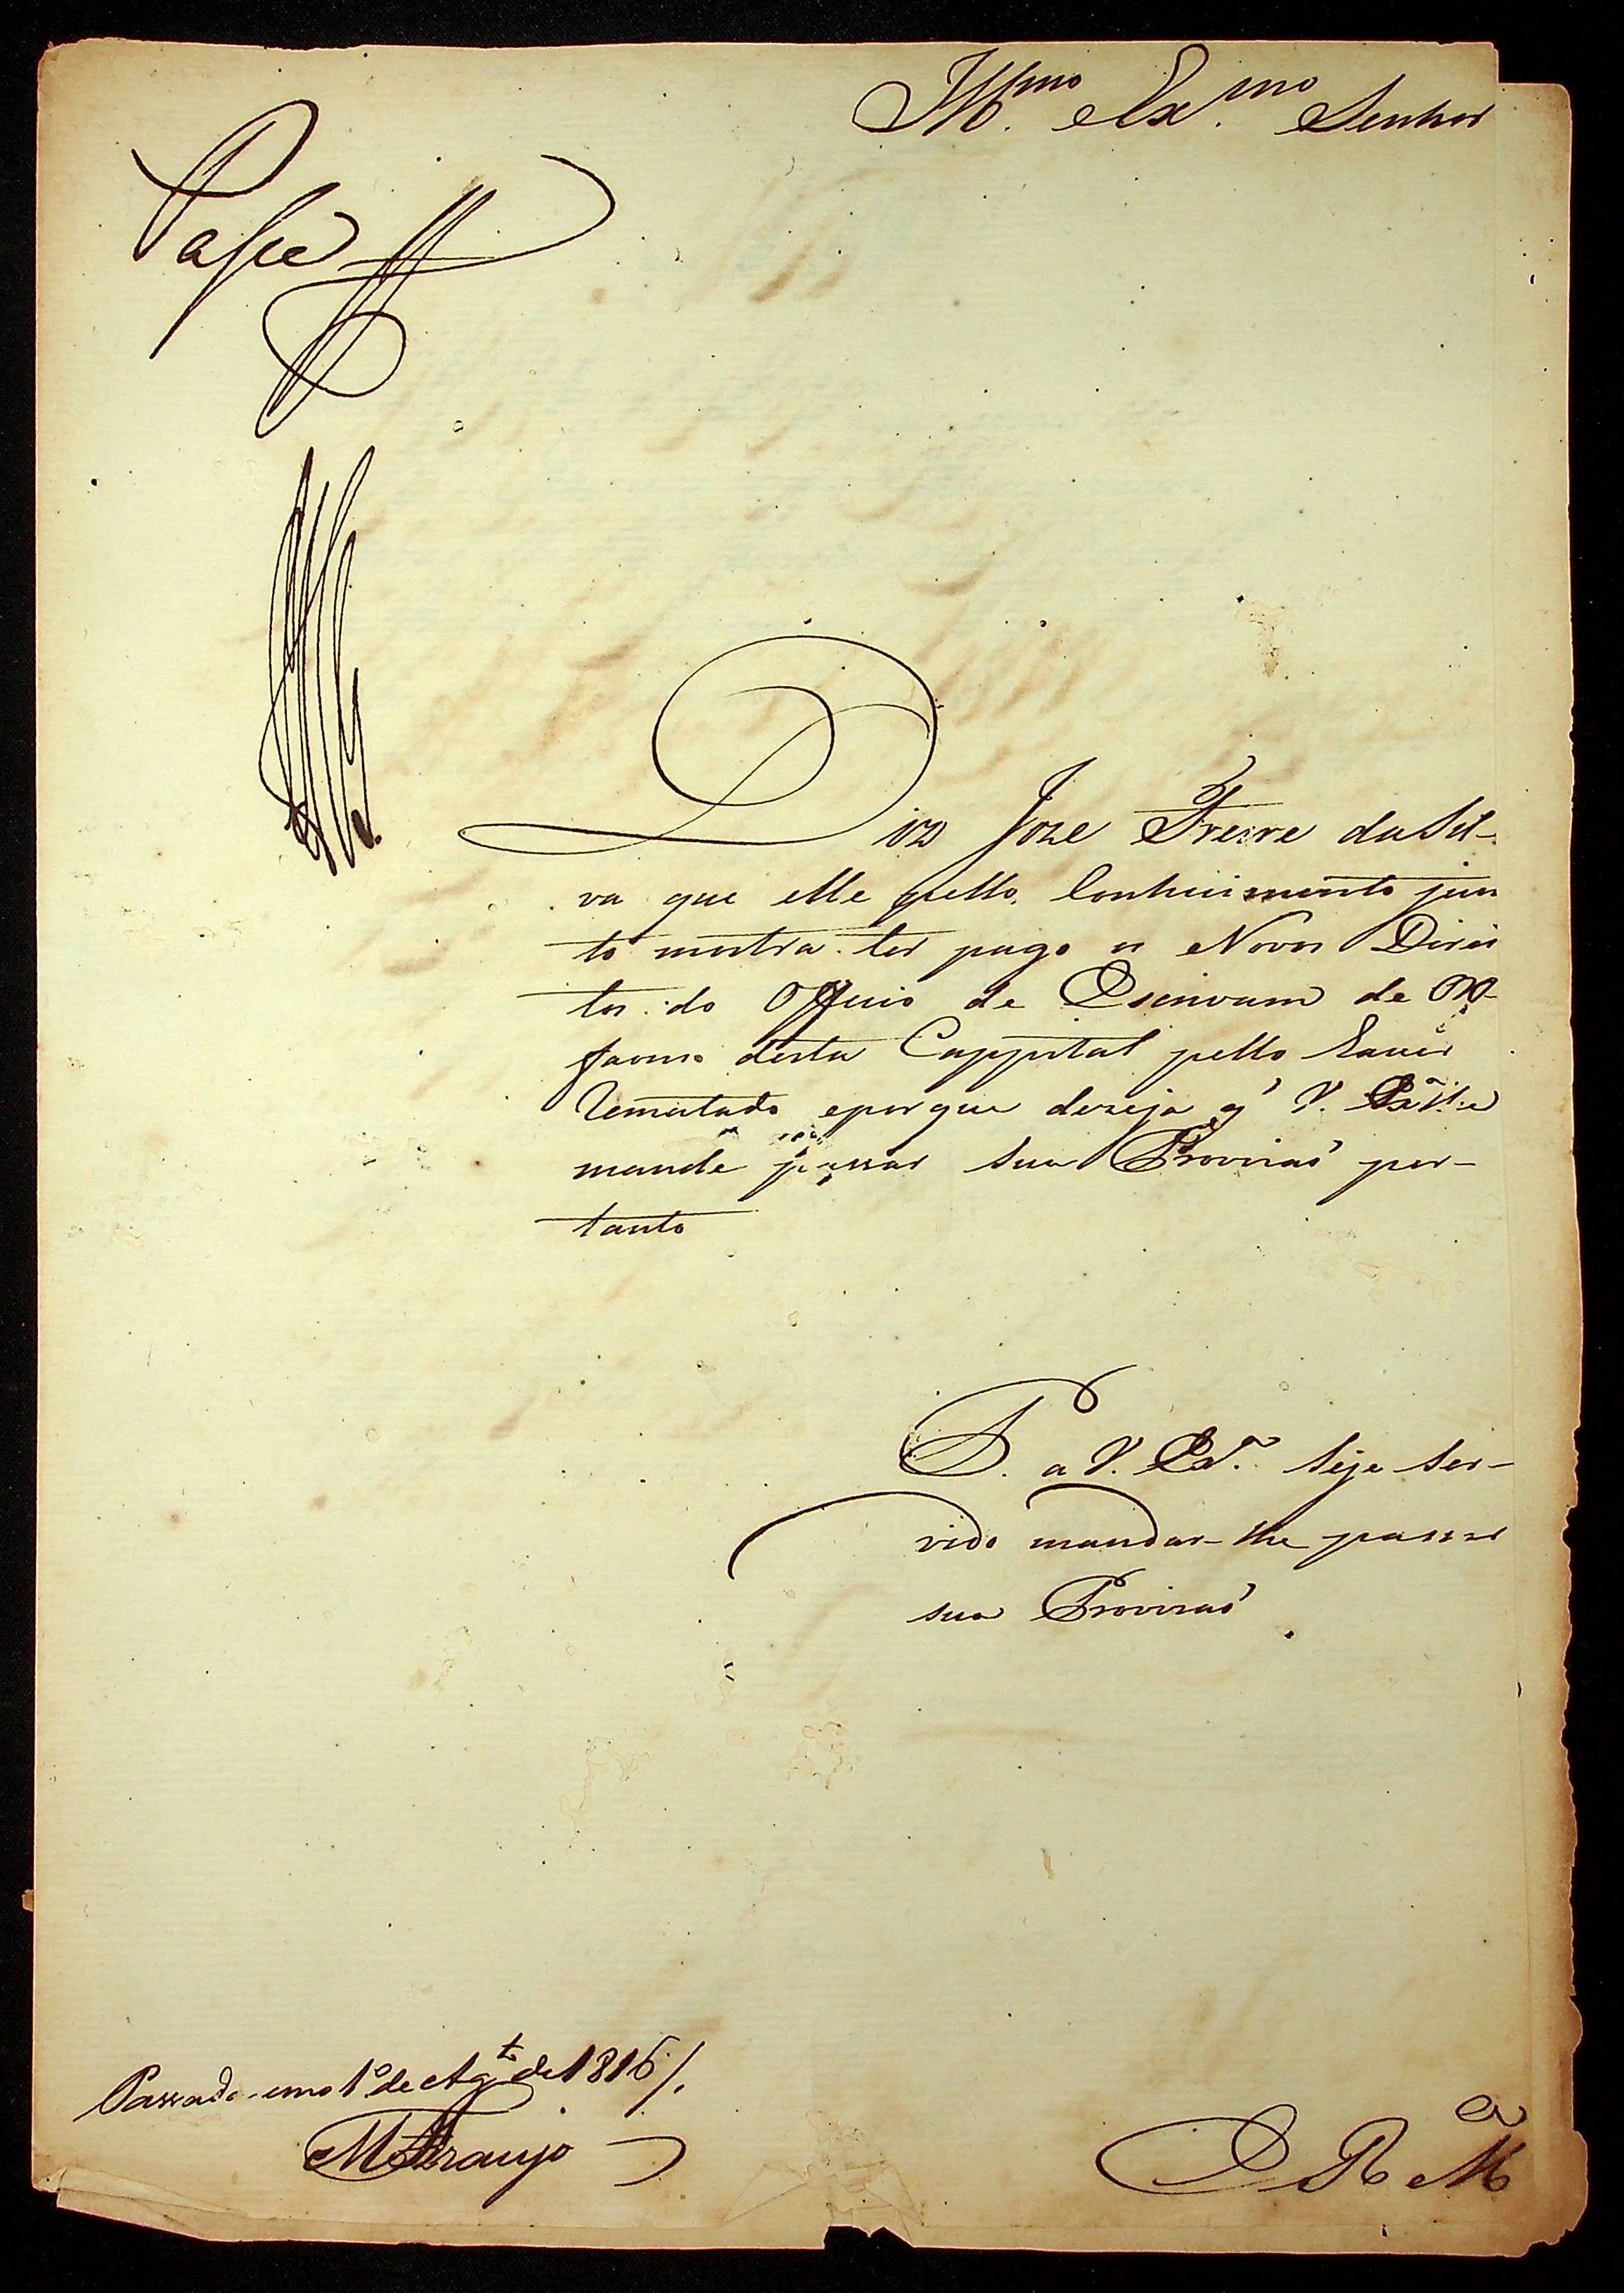 Ill.mo e Ex.mo Senhor
Passe
Diz Joze Freire da Sil-
va que elle pello Conhecimento jun
to mostra ter pago os Novos Direi
tos do Officio de Escrivam de
desta Cappital pello
Rematado e porque dezeja q' V. Exª lhe
mande passar sua Provizaõ por-
tanto
P. a V. Exª Seje Ser-
vido mandar-lhe passar
sua Provizaõ
Passada em o 1º de Ag.to de 1816/.
MAraujo
E R Mce